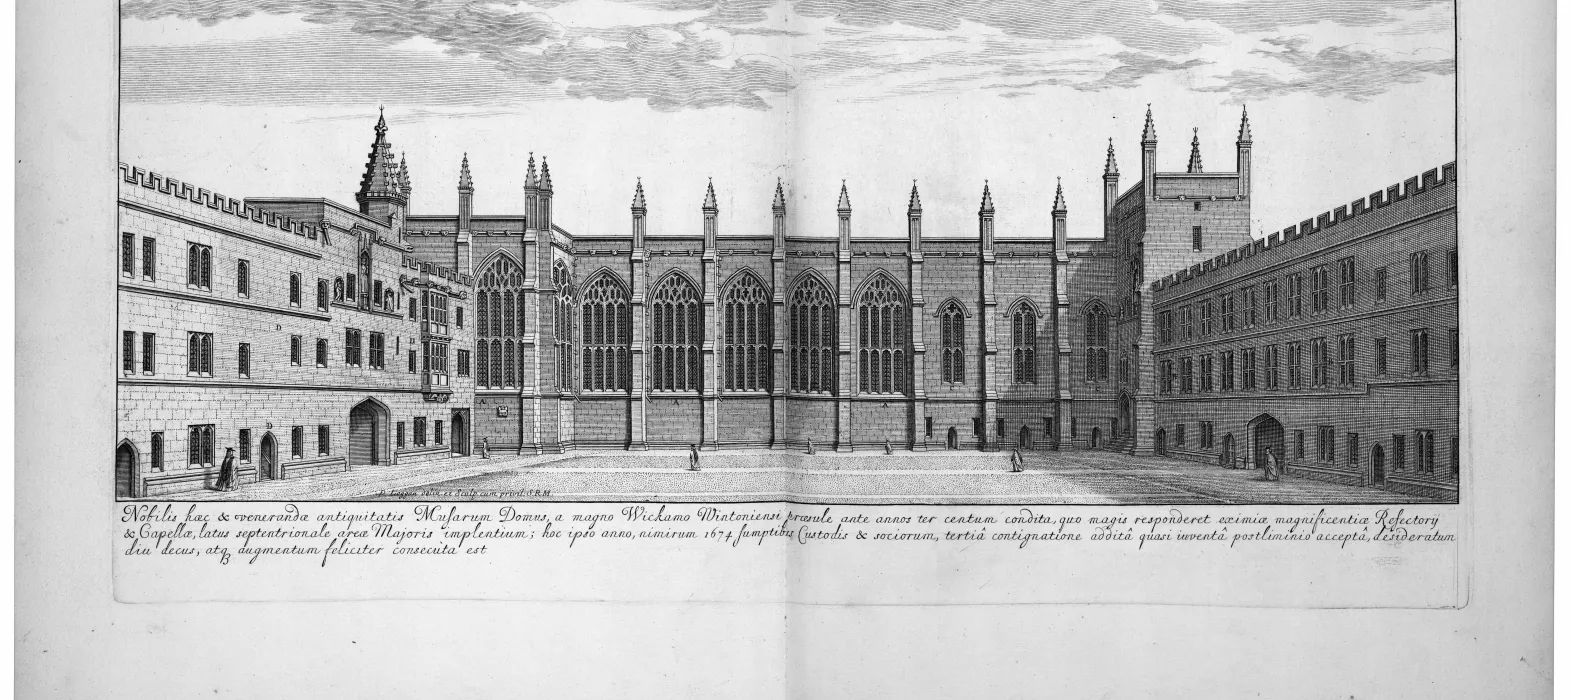 D
D
A
A
A
D. Loggan delin. et Sculp. cum privil. S.R.M.
Nobilis hæc & venerandæ antiquitatis Musarum Domus, a magno Wickamo Wintoniensi præsule ante annos ter centum condita, quo magis responderet eximiæ magnificentiæ Refectorij
& Capellæ, latus septentrionale areæ Majoris implentium; hoc ipso anno, nimirum 1674 sumptibus Custodis & sociorum, tertiâ contignatione additâ quasi iuventâ postliminio acceptâ, desideratum
diu decus, atq augmentum feliciter consecuta est